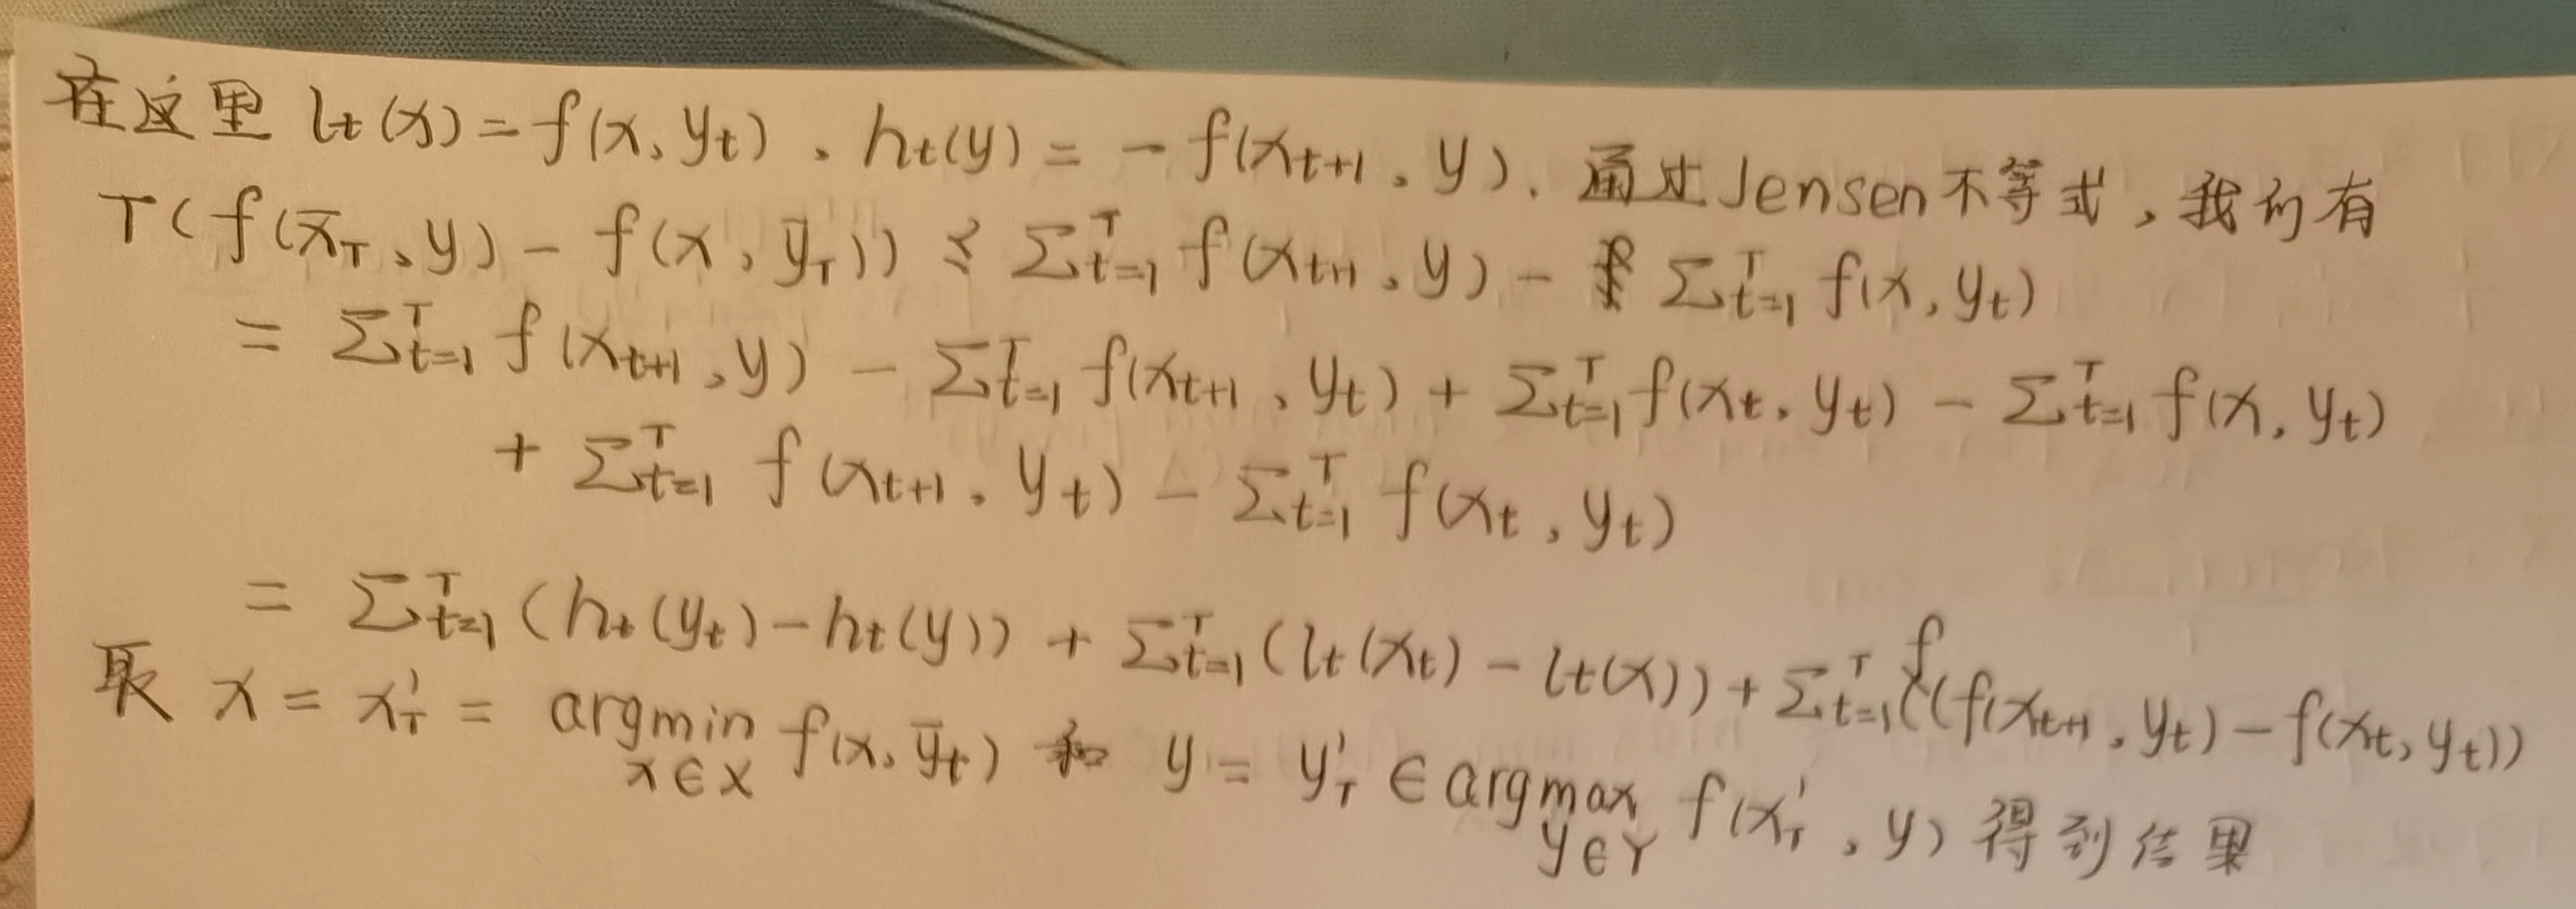 在这里 lt(x)=f(x, yt), ht(y) = -f(xt+1, y). 通过Jensen不等式, 我们有
T(f(x̄T, y) - f(x, ȳT)) ≤ Σ_{t=1}^T f(xt+1, y) - Σ_{t=1}^T f(x, yt)
= Σ_{t=1}^T f(xt+1, y) - Σ_{t=1}^T f(xt+1, yt) + Σ_{t=1}^T f(xt, yt) - Σ_{t=1}^T f(x, yt)
+ Σ_{t=1}^T f(xt+1, yt) - Σ_{t=1}^T f(xt, yt)
= Σ_{t=1}^T (ht(yt) - ht(y)) + Σ_{t=1}^T (lt(xt) - lt(x)) + Σ_{t=1}^T ((f(xt+1, yt) - f(xt, yt))
取 x = x'T = argmin_{x∈X} f(x, ȳt) 和 y = y'T ∈ argmax_{y∈Y} f(x'T, y) 得到结果